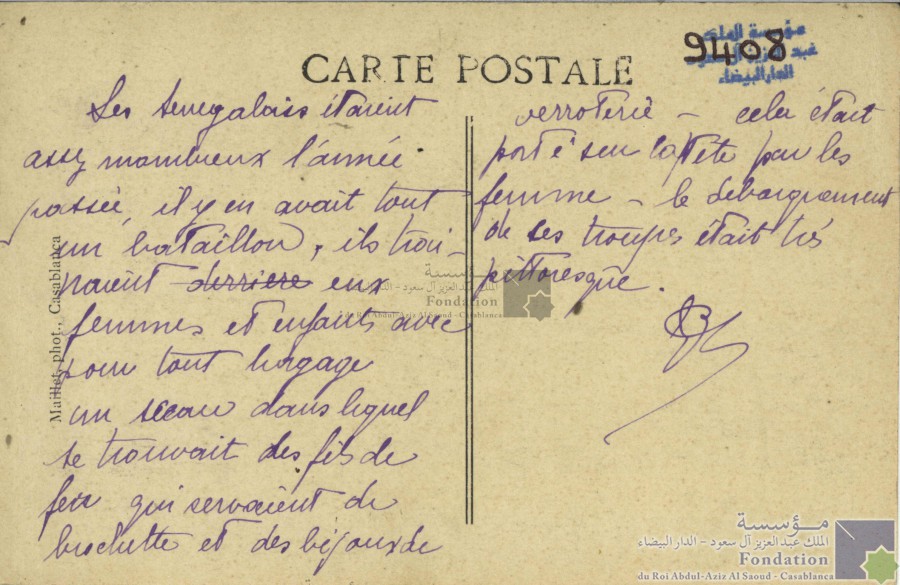 CARTE POSTALE
9408
مؤسسة الملك
عبد العزيز آل سعود
الدار البيضاء
Les senegalais étaient
assez nombreux l'année
passée, il y en avait tout
un bataillon, ils trai-
naient derriere eux
femmes et enfants avec
pour tout bagage
un seceau dans lequel
se trouvait des fils de
fer qui servaient de
brochette et des bijoux de
verroterie – cela était
porté sur la tête par les
femme – le debarquement
de ses troupes était très
pittoresque.
Maillet, phot., Casablanca
مؤسسة
الملك عبد العزيز آل سعود - الدار البيضاء
Fondation
du Roi Abdul-Aziz Al Saoud - Casablanca
مؤسسة
الملك عبد العزيز آل سعود - الدار البيضاء
Fondation
du Roi Abdul-Aziz Al Saoud - Casablanca